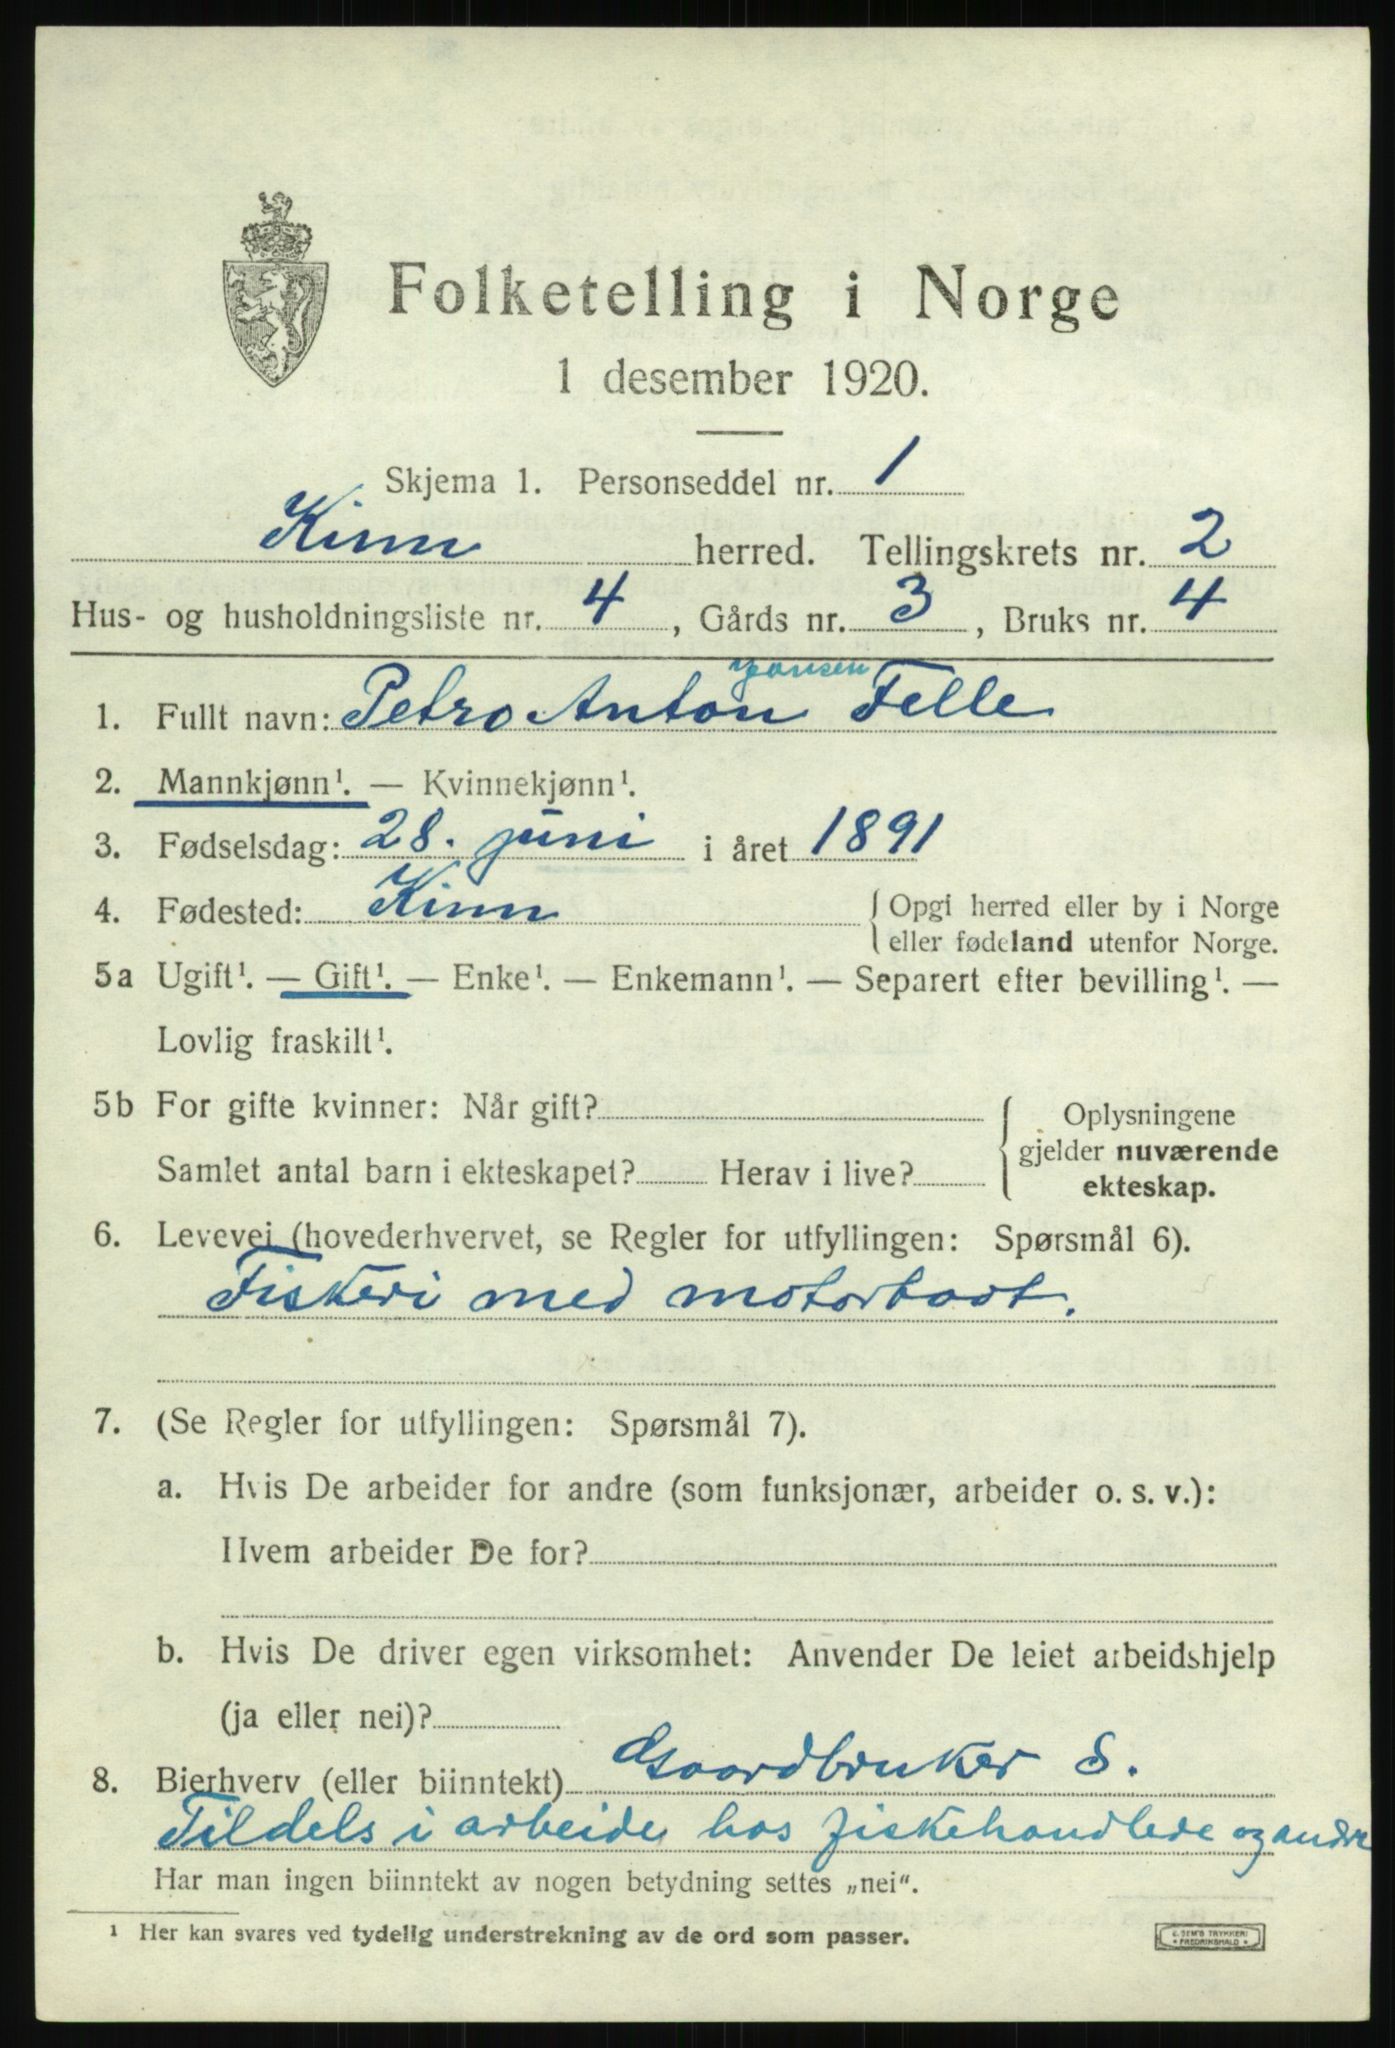 Folketelling i Norge
1 desember 1920.
Skjema 1. Personseddel nr. 1
Kinn herred. Tellingskrets nr. 2
Hus- og husholdningsliste nr. 4, Gårds nr. 3, Bruks nr. 4
Jansen
1. Fullt navn: Petro Anton Felle
2. Mannkjønn¹. — Kvinnekjønn¹.
3. Fødselsdag: 28. juni i året 1891
4. Fødested: Kinn { Opgi herred eller by i Norge
eller fødeland utenfor Norge.
5a Ugift¹. — Gift¹. — Enke¹. — Enkemann¹. — Separert efter bevilling¹. —
Lovlig fraskilt¹.
5b For gifte kvinner: Når gift?
Samlet antal barn i ekteskapet? Herav i live?
{ Oplysningene
gjelder nuværende
ekteskap.
6. Levevei (hovederhvervet, se Regler for utfyllingen: Spørsmål 6).
Fiskeri med motorbaat.
7. (Se Regler for utfyllingen: Spørsmål 7).
a. Hvis De arbeider for andre (som funksjonær, arbeider o. s. v.):
Hvem arbeider De for?
b. Hvis De driver egen virksomhet: Anvender De leiet arbeidshjelp
(ja eller nei)?
8. Bierhverv (eller biinntekt) Gaardbruker S.
Tildels i arbeide hos fiskehandlere og andre
Har man ingen biinntekt av nogen betydning settes „nei".
¹ Her kan svares ved tydelig understrekning av de ord som passer.
E. SEM'S TRYKKERI
• FREDRIKSHALD •